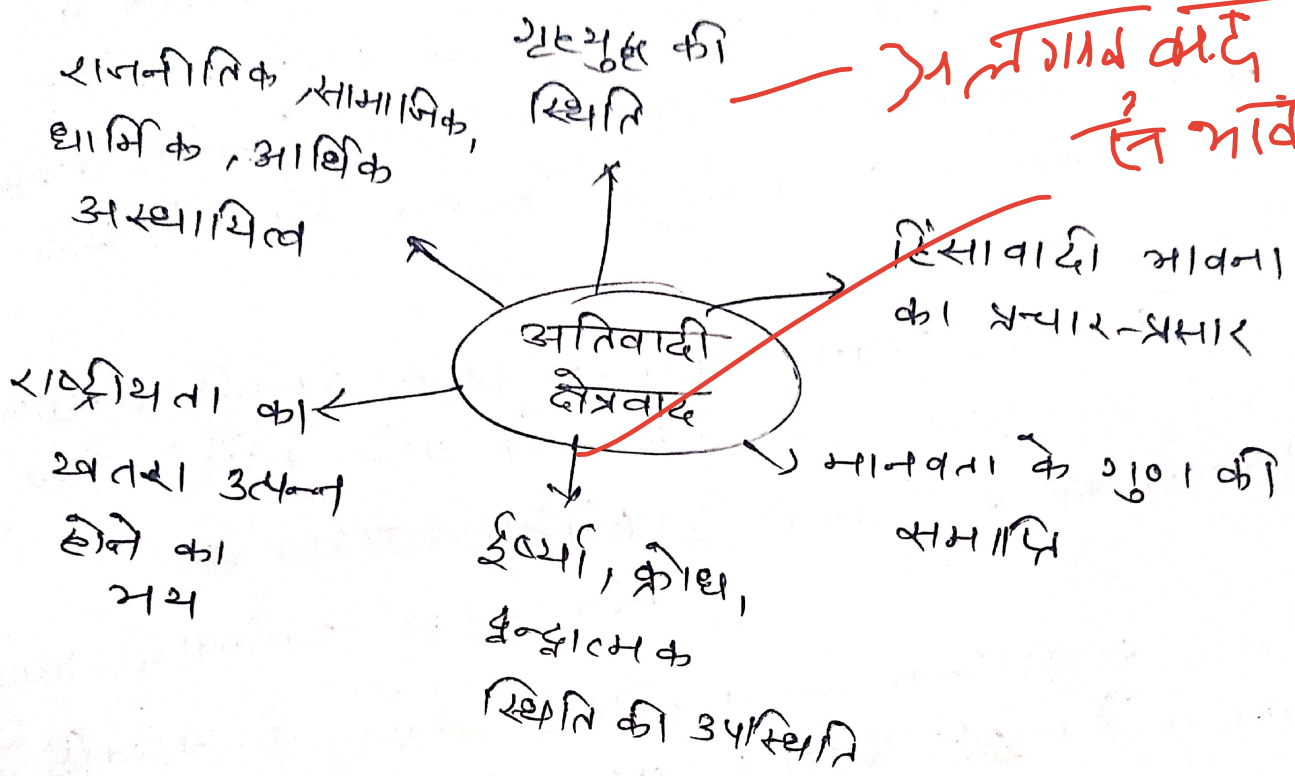 गृहयुद्ध की
स्थिति
राजनीतिक, सामाजिक,
धार्मिक, आर्थिक
अस्थायित्व
अलगाववाद
भाव
हिंसावादी भावना
का प्रचार-प्रसार
अतिवादी
क्षेत्रवाद
राष्ट्रीयता का
खतरा उत्पन्न
होने का
भय
मानवता के गुण की
समाप्ति
ईर्ष्या, क्रोध,
द्वन्द्वात्मक
स्थिति की उपस्थिति